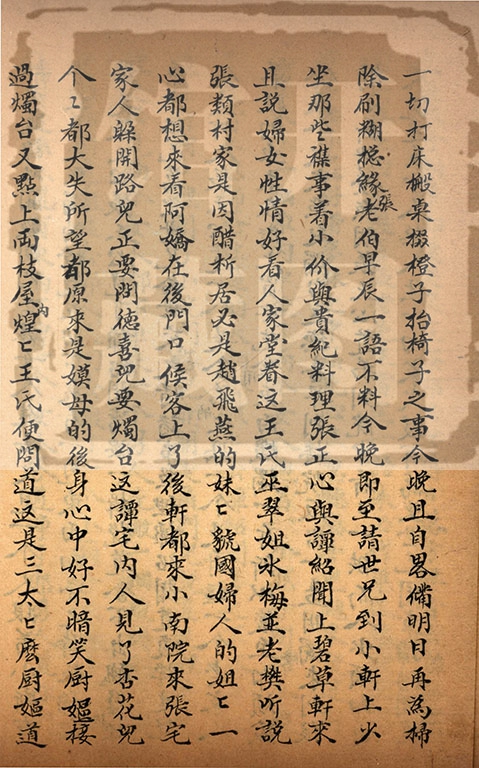 一切打床搬桌掇橙子抬椅子之事今晚且自畧備明日再為掃
除刷糊捴緣張老伯早辰一語不料今晚即至請世兄到小軒上少
坐那些襍事着小价與貴紀料理張正心與譚紹聞上碧草軒來
且說婦女性情好看人家堂眷这王氏巫翠姐氷梅並老樊听說
張類村家是因醋析居必是趙飛燕的妹匕虢國婦人的姐匕一
心都想來看阿嬌在後門口候客上了後軒都來小南院來張宅
家人躲開路兒正要問德喜兒要燭台这譚宅內人見了杏花兒
个匕都大失所望都原來是嫫母的後身心中好不暗笑厨嫗接
過燭台又點上両枝屋內煌匕王氏便問道这是三太匕麽厨嫗道